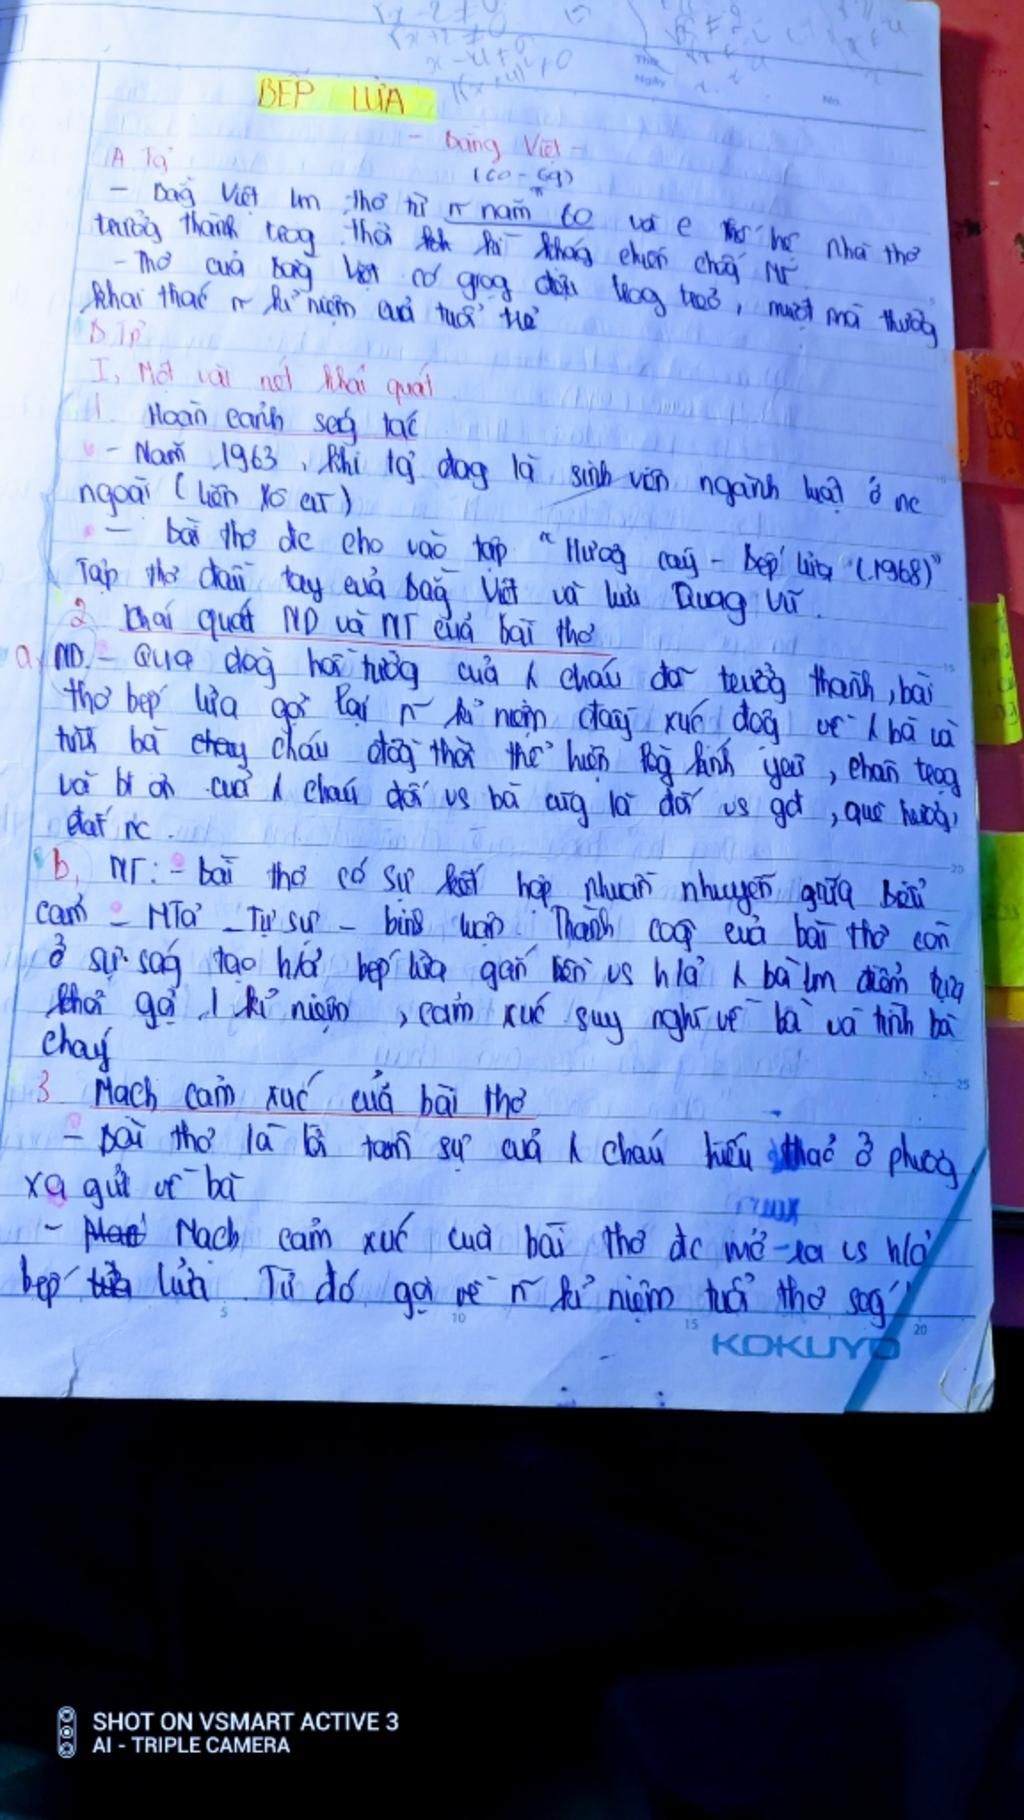 BẾP LỬA
- Bằng Việt -
A Tg
- Bằng Việt lm thơ từ n năm 60 và nhà thơ
trưởng thành trog thời kì kháng chiến chống Mĩ
- Thơ của Bằng Việt có giọg trog trẻo, mượt mà thường
khai thác n kỉ niệm của tuổi trẻ
B Tp
I, Một vài nét khái quát
1. Hoàn cảnh ság tác
- Năm 1963, khi tg đag là sinh viên ngành luật ở nc
ngoài (Liên Xô cũ)
- bài thơ đc cho vào tập "Hương cây - Bếp lửa (1968)"
Tập thơ đầu tay của Bằng Việt và Lưu Quag Vũ.
2. Khái quát ND và NT của bài thơ
a, ND. - Qua dòg hồi tưởng của 1 cháu đã trưởng thành, bài
thơ bếp lửa gợi lại n kỉ niệm đầy xúc độg về 1 bà và
tình bà chay cháu đồg thời thể hiện lòg kính yêu, chân trọg
và bị ơn của 1 cháu đối vs bà cũg là đối vs gđ, quê hươg,
đất nc.
b, NT: - bài thơ có sự kết hợp nhuần nhuyễn giữa Biểu
cảm - MTả - Tự sự - bình luận. Thành côg của bài thơ còn
ở sự ság tạo h/ả bếp lửa gắn liền vs h/ả 1 bà lm điểm tựa
khơi gợi 1 kỉ niệm, cảm xúc suy nghĩ về bà và tình bà
cháy
3 Mạch cảm xúc của bài thơ
- Bài thơ là lời tâm sự của 1 cháu hiếu thảo ở phươg
xa gửi về bà
- Mạch cảm xúc của bài thơ đc mở ra vs h/ả
bếp lửa. Từ đó gợi về n kỉ niệm tuổi thơ sốg
KOKUYO
SHOT ON VSMART ACTIVE 3
AI - TRIPLE CAMERA